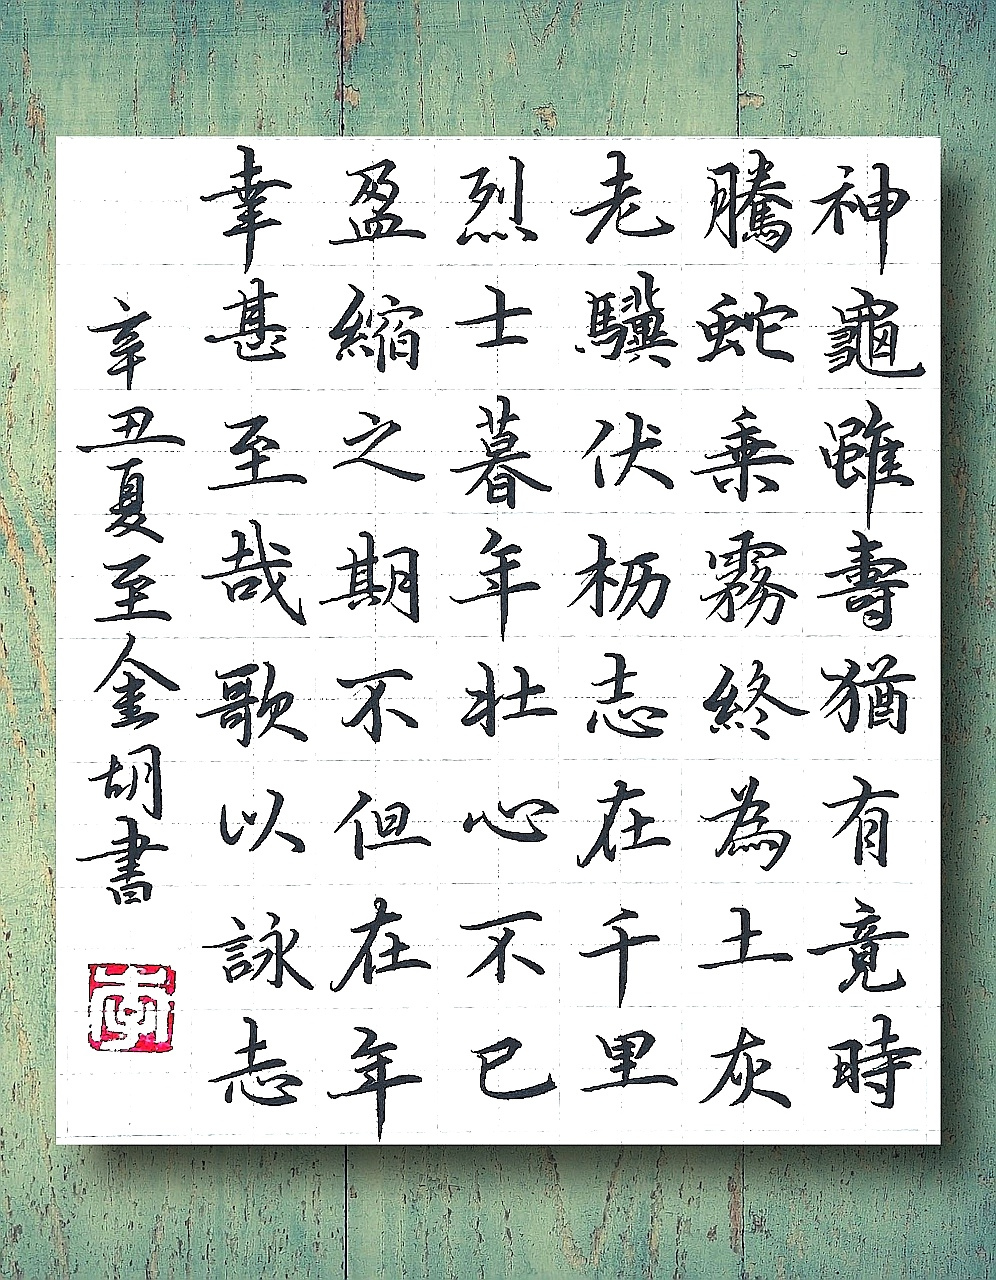 神龜雖壽猶有竟時
騰蛇乘霧終為土灰
老驥伏枥志在千里
烈士暮年壯心不已
盈縮之期不但在年
幸甚至哉歌以詠志
辛丑夏至金胡書